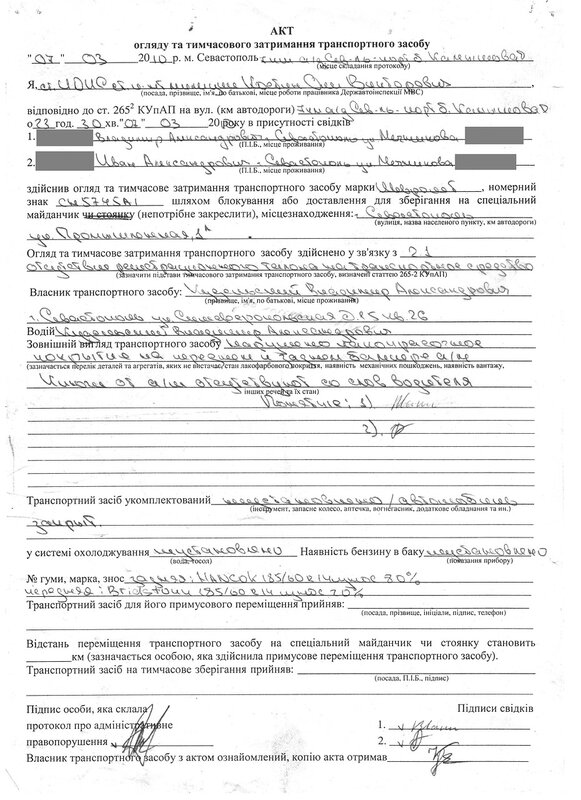 АКТ
огляду та тимчасового затримання транспортного засобу
"07" 03 2010 р. м. Севастополь
(місце складання протоколу)
Я,
(посада, прізвище, ім'я, по батькові, місце роботи працівника Державтоінспекції МВС)
відповідно до ст. 265² КУпАП на вул. (км автодороги)
о 23 год. 30 хв. "07" 03 20 року в присутності свідків
1. Владимир Александрович Севастополь ул
(П.І.Б., місце проживання)
2. Иван Александрович - Севастополь ул
(П.І.Б., місце проживання)
здійснив огляд та тимчасове затримання транспортного засобу марки Шевролет, номерний
знак СН5745АІ шляхом блокування або доставлення для зберігання на спеціальний
майданчик чи стоянку (непотрібне закреслити), місцезнаходження: Севастополь
(вулиця, назва населеного пункту, км автодороги)
ул. Промышленная, 1А
Огляд та тимчасове затримання транспортного засобу здійснено у зв'язку з 2.1
отсутствие регистрационного талона на транспортное средство
(зазначити підстави тимчасового затримання транспортного засобу, визначені статтю 265-2 КУпАП)
Власник транспортного засобу: Владимир Александрович
(прізвище, ім'я, по батькові, місце проживання)
г. Севастополь ул Симферопольская д. 25 кв. 26
Водій Владимир Александрович
Зовнішний вигляд транспортного засобу лакокрасочное
покрытие на переднем и заднем бампере а/м
(зазначається перелік деталей та агрегатів, яких не вистачає, стан лакофарбового покриття, наявність механічних пошкоджень, наявність вантажу,
от а/м отсутствуют со слов водителя
інших речей та їх стан)
Понятые: 1)
2).
Транспортний засіб укомплектований неустановлено / автомобиль
(інструмент, запасне колесо, аптечка, вогнегасник, додаткове обладнання та ин.)
закрыт.
у системі охолоджування неустановлено Наявність бензину в баку неустановлено
(вода, тосол) (показання прибору)
№ гуми, марка, знос задняя: HANCOK 185/60 R14 80%
передняя: 185/60 R14 70%
Транспортний засіб для його примусового переміщення прийняв:
(посада, прізвище, ініціали, підпис, телефон)
Відстань переміщення транспортного засобу на спеціальний майданчик чи стоянку становить
км (зазначається особою, яка здійснила примусове переміщення транспортного засобу).
Транспортний засіб на тимчасове зберігання прийняв:
(посада, П.І.Б., підпис)
Підпис особи, яка склала Підписи свідків
протокол про адміністративне 1.
правопорушення 2.
Власник транспортного засобу з актом ознайомлений, копію акта отримав